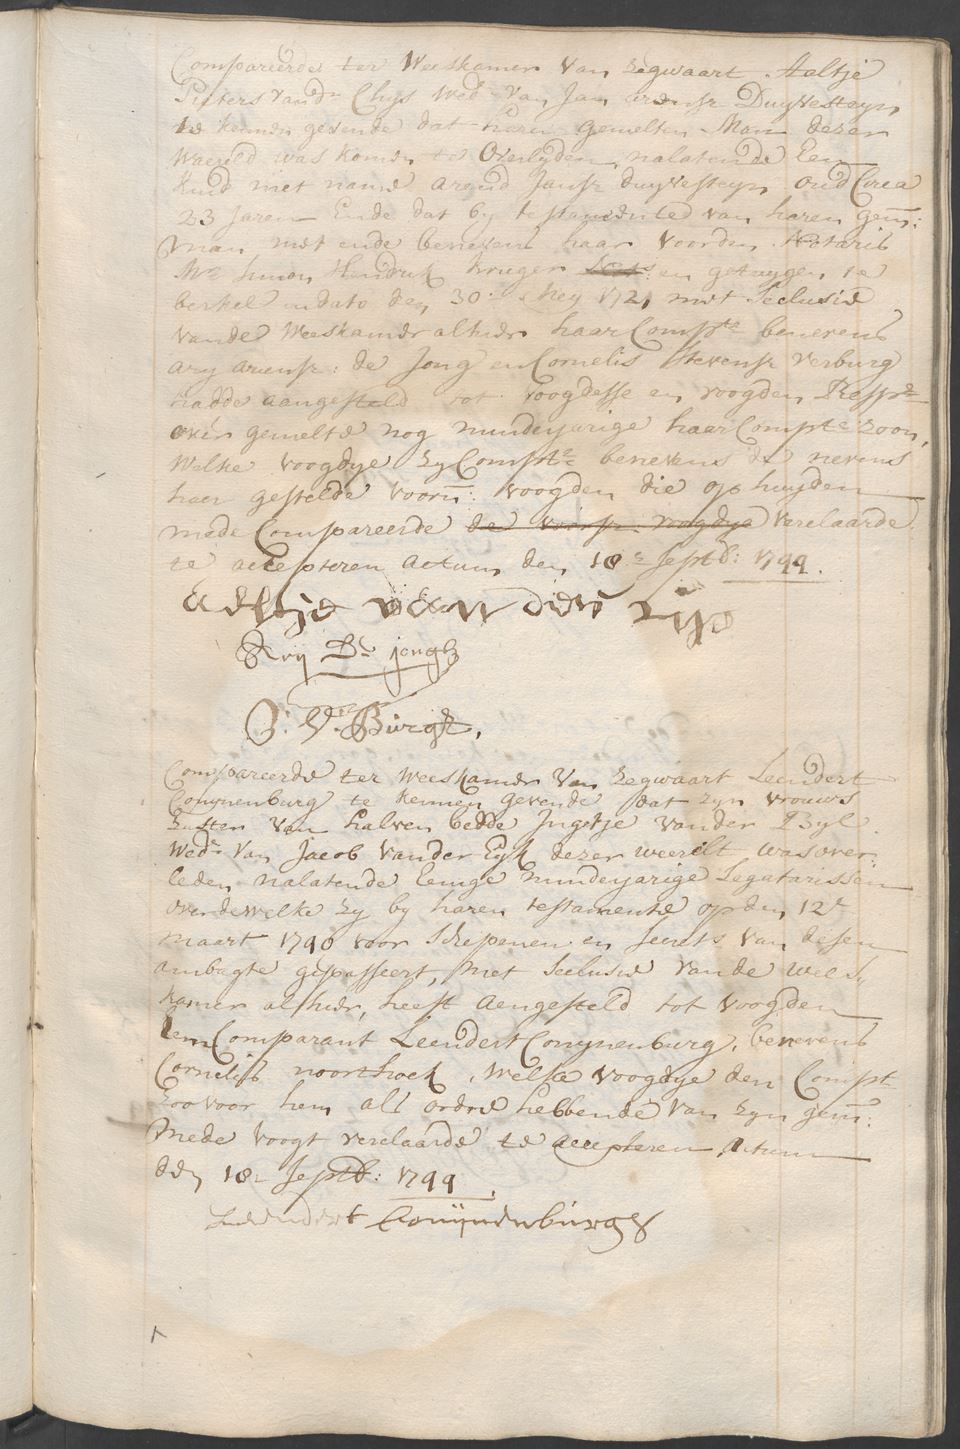 Compareerde ter Weeskamer van Zegwaart Aeltje
Pieters vande Chijs wed.e van Jan arense Duyvesteyn
te kennen gevende dat haren gemelten Man dezer
waereld was komen te Overlyden, nalatende Een
kind met name arend Janse duyvesteyn oud Circa
23 Jaren Ende dat by testamente van haren gem:
man met ende benevens haar voor den Notaris
Mr Simon Hendrick Kruger en getuygen te
berkel in dato den 30: Mey 1721 met Seclusie
vande Weeskamer alhier haar Compte benevens
ary arense: de Jong en Cornelis Stevense Verburg
hadde aangesteld tot voogdesse en voogden Respe
over gemelte nog minderjarige haar Compte zoon,
Welke voogdye zy Compte benevens de nevens
haer gestelde voorn: voogden die op huyden
mede Compareerde de voorsz. voogdye verclaarde
te accepteren actum den 18e Septb: 1744.
aeltje van der
Arij De jongh
C: V: Burgh,
Compareerde ter Weeskamer Van Zegwaart Leendert
Conynenburg te kennen gevende dat zyn vrouws
Zuster van halven bedde Ingetje vander Byl
wed.e van Jacob vander Eyk dezer weerelt was over:
leden nalatende Eenige minderjarige Legatarissen
over dewelke zy by haren testamente op den 12e
maart 1740 voor Schepenen en Secrets van desen
ambagte gepasseert, met Seclusie vande Wees-
kamer alhier, heeft aengesteld tot voogden
den Comparant Leendert Conynenburg, benevens
Cornelis noorthoek, welke voogdye den Compt
zoo voor hem als ordre hebbende van zyn gem:
mede voogt verclaarde te accepteren, Actum
den 18e Septb: 1744,
Leendert Conijnenburgh